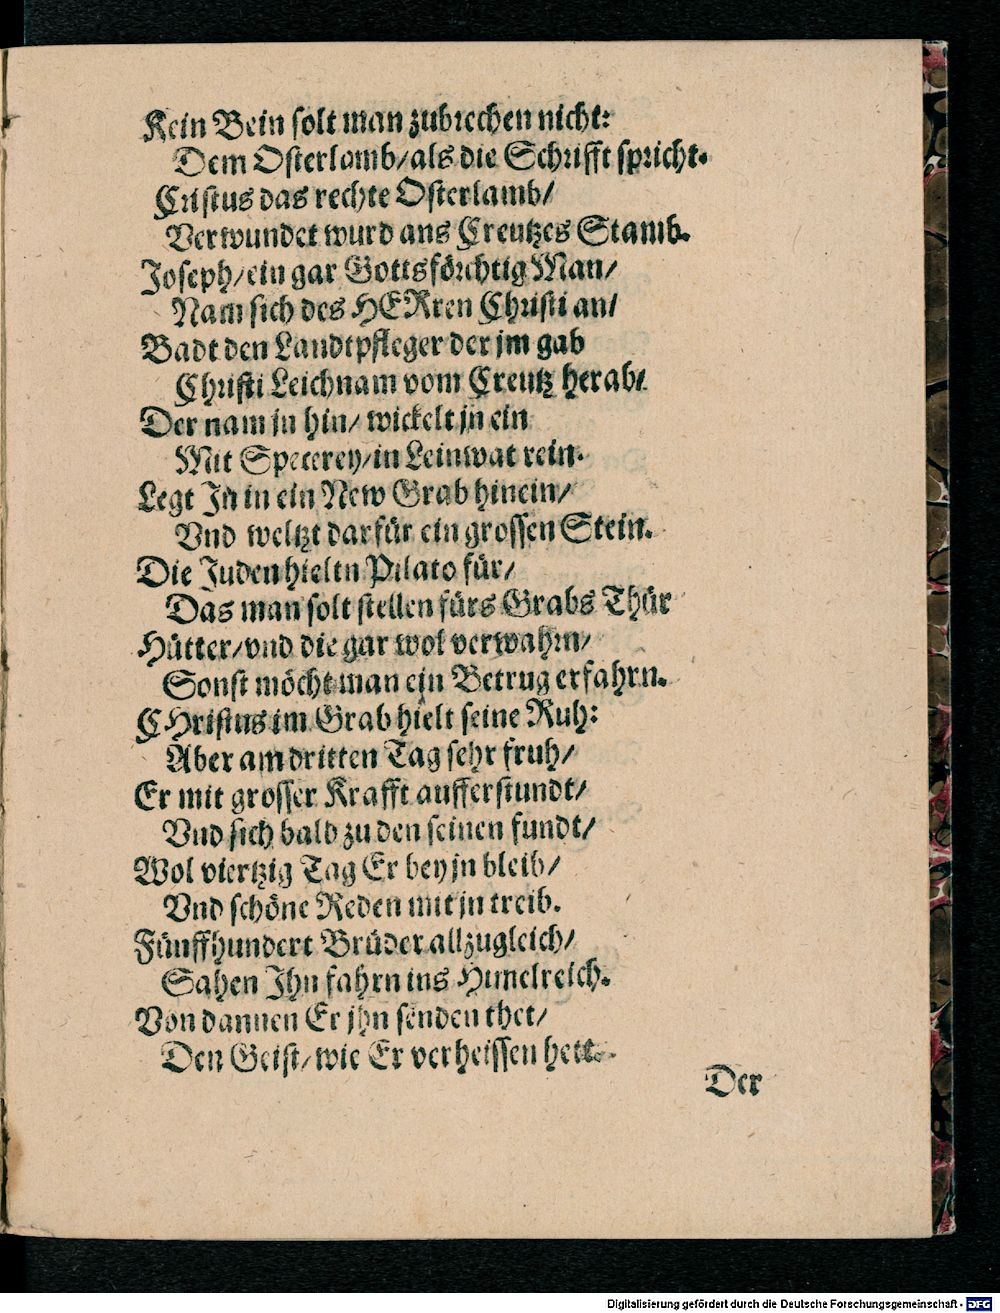 Kein Bein solt man zubrechen nicht:
Dem Osterlamb/als die Schrifft spricht.
Cristus das rechte Osterlamb/
Verwundet wurd ans Creutzes Stamb.
Joseph/ein gar Gottsförchtig Man/
Nam sich des HERren Christi an/
Badt den Landtpfleger der jm gab
Christi Leichnam vom Creutz herab/
Der nam jn hin/ wickelt jn ein
Mit Specerey/in Leinwat rein.
Legt Jn in ein New Grab hinein/
Vnd weltzt darfür ein grossen Stein.
Die Juden hieltn Pilato für/
Das man solt stellen fürs Grabs Thür
Hütter/vnd die gar wol verwahrn/
Sonst möcht man ein Betrug erfahrn.
CHristus im Grab hielt seine Ruh:
Aber am dritten Tag sehr fruh/
Er mit grosser Krafft aufferstundt/
Vnd sich bald zu den seinen fundt/
Wol viertzig Tag Er bey jn bleib/
Vnd schöne Reden mit jn treib.
Fünffhundert Brüder allzugleich/
Sahen Jhn fahrn ins Himelreich.
Von dannen Er jhn senden thet/
Den Geist/wie Er verheissen hett.
Der
Digitalisierung gefördert durch die Deutsche Forschungsgemeinschaft - DFG